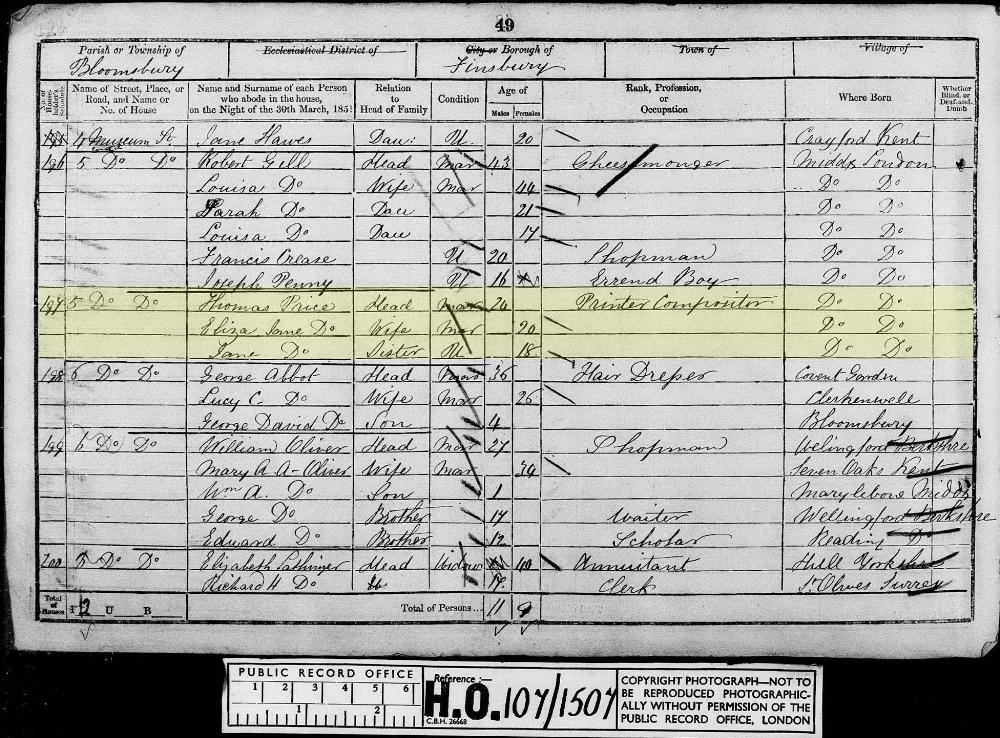 49
Parish or Township of Ecclesiastical District of City or Borough of Town of Village of
Bloomsbury Finsbury
No. of Householder's Schedule Name of Street, Place, or Road, and Name or No. of House Name and Surname of each Person who abode in the house, on the Night of the 30th March, 1851 Relation to Head of Family Condition Age of Males Females Rank, Profession, or Occupation Where Born Whether Blind, or Deaf-and-Dumb
195 4 Museum St. Jane Hawes Daur U 20 Crayford Kent
196 5 Do Do Robert Gill Head Mar 43 Cheesmonger Middx London
Louisa Do Wife Mar 44 Do Do
Sarah Do Dau 21 Do Do
Louisa Do Dau 17 Do Do
Francis Crease U 20 Shopman Do Do
Joseph Penny U 16 Errend Boy Do Do
197 5 Do Do Thomas Price Head Mar 24 Printer Compositor Do Do
Eliza Jane Do Wife Mar 20 Do Do
Jane Do Sister U 18 Do Do
198 6 Do Do George Abbot Head Mar 36 Hair Dresser Covent Garden
Lucy C. Do Wife Mar 26 Clerkenwell
George David Do Son 4 Bloomsbury
199 6 Do Do William Oliver Head Mar 27 Shopman Welingford Berkshire
Mary A A Oliver Wife Mar 34 Seven Oaks Kent
Wm A. Do Son 1 Marylebone Middx
George Do Brother 17 Waiter Wellingford Berkshire
Edward Do Brother 12 Scholar Reading Do
200 5 Do Do Elizabeth Head Widow 40 Annuitant Hull Yorkshire
Richard H Do 19 Clerk St Olives Surrey
Total of Houses I 2 U B Total of Persons... 11 9
PUBLIC RECORD OFFICE
1 2 3 4 5 6
1 2
Reference:—
H.O. 107/1507
C.B.H. 26668
COPYRIGHT PHOTOGRAPH—NOT TO
BE REPRODUCED PHOTOGRAPHIC-
ALLY WITHOUT PERMISSION OF THE
PUBLIC RECORD OFFICE, LONDON